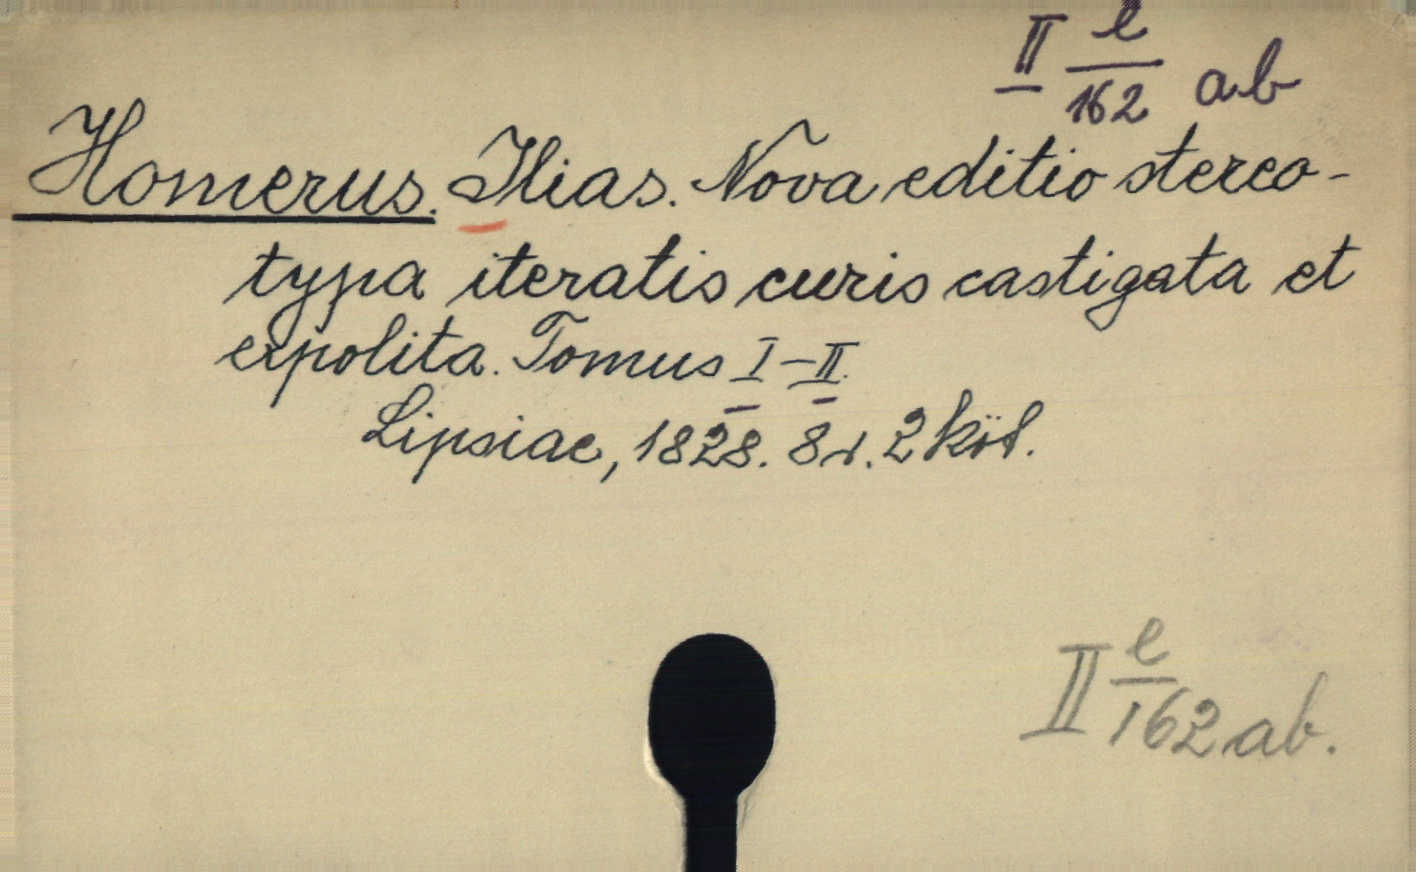 II e/162 ab
Homerus. Ilias. Nova editio stereo-
typa iteratis curis castigata et
expolita. Tomus I-II.
Lipsiae, 1828. 8r. 2 köt.
II e/162 ab.